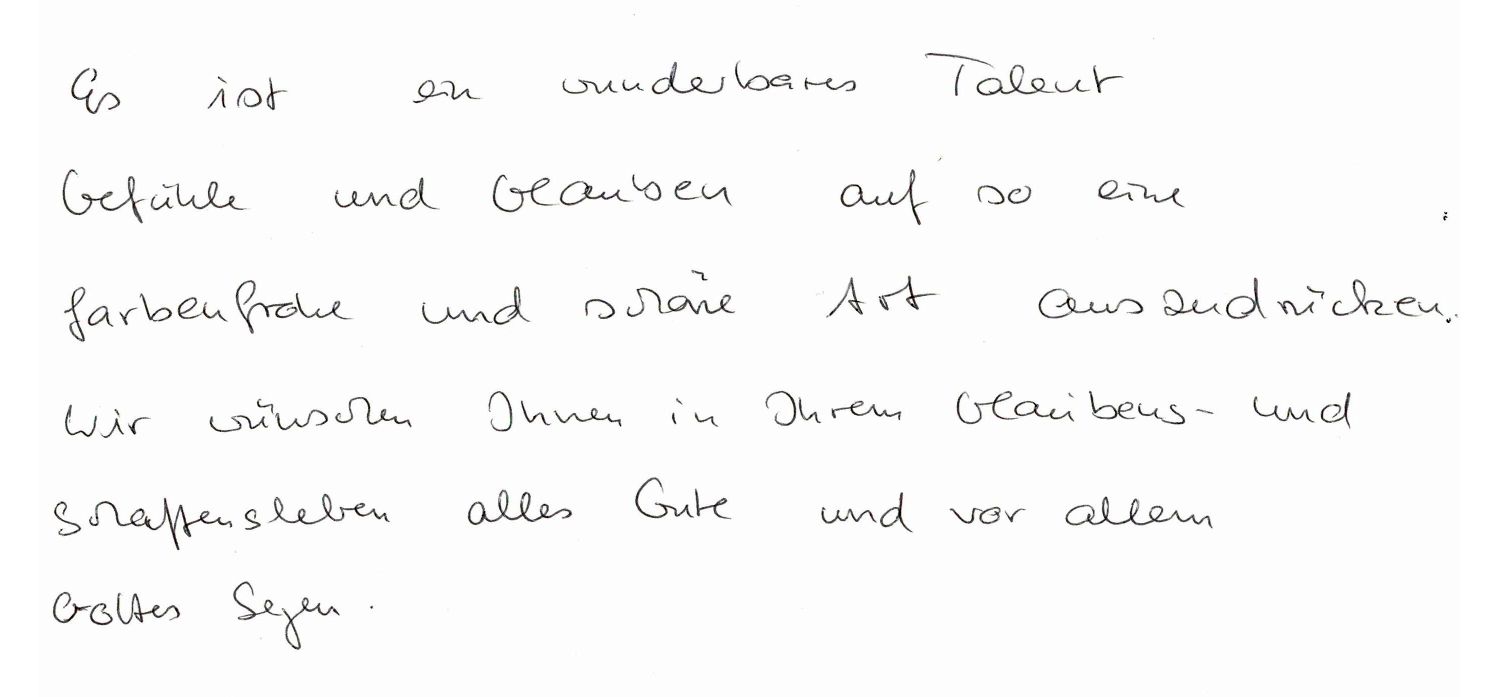 Es ist ein wunderbares Talent
Gefühle und Glauben auf so eine
farbenfrohe und schöne Art auszudrücken.
Wir wünschen Ihnen in Ihrem Glaubens- und
Schaffensleben alles Gute und vor allem
Gottes Segen.